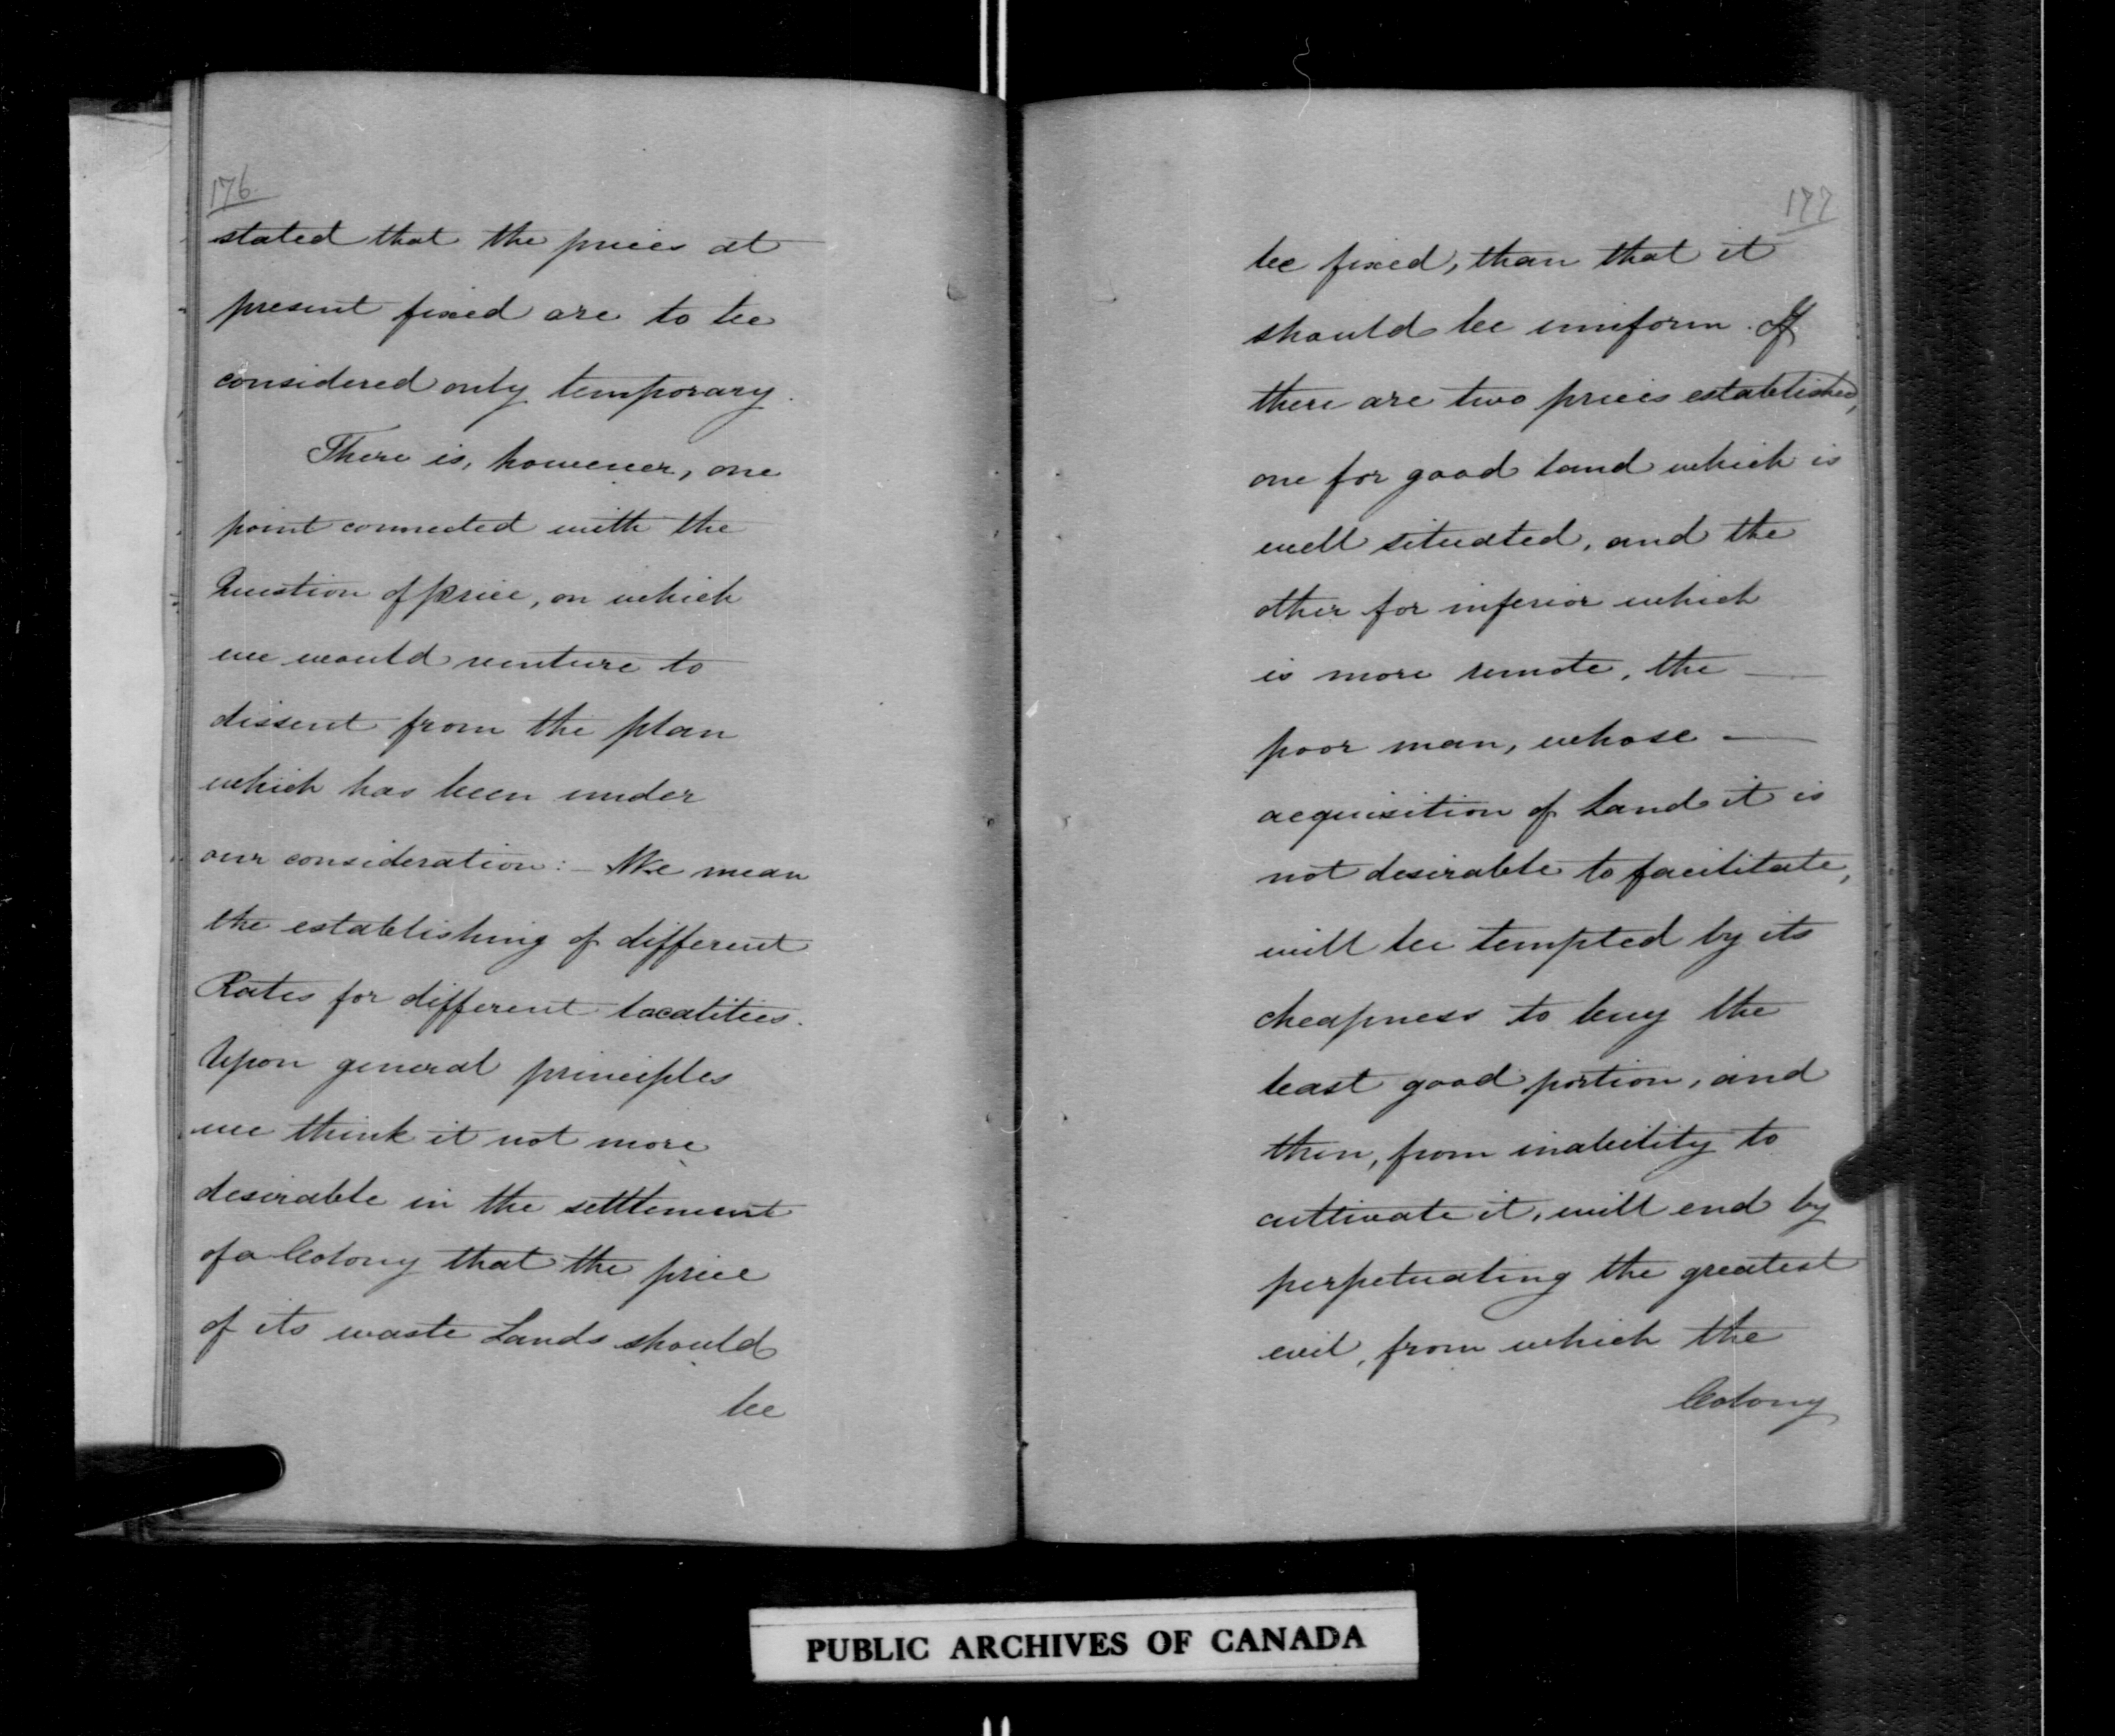 176.
stated that the prices at
present fixed are to be
considered only temporary.
There is, however, one
point connected with the
Question of price, on which
we would venture to
dissent from the plan
which has been under
our consideration:— We mean
the establishing of different
Rates for different localities.
Upon general principles
we think it not more
desirable in the settlement
of a Colony that the price
of its waste Lands should
be
177
be fixed, than that it
should be uniform. If
there are two prices established,
one for good land which is
well situated, and the
other for inferior which
is more remote, the —
poor man, whose —
acquisition of Land it is
not desirable to facilitate,
will be tempted by its
cheapness to buy the
least good portion, and
then, from inability to
cultivate it, will end by
perpetuating the greatest
evil, from which the
Colony
PUBLIC ARCHIVES OF CANADA